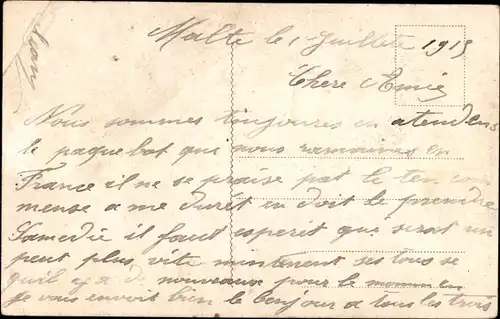 Malte le 1 Juillete 1915
Chere Amie
Nous sommes toujoures en atendens
le paquebot qui nous ramainera en
France il ne se praise pat le ten co
mense a me duret en doit le prendre
Samedie il faut esperit que serat un
peut plus vite mintenent ses tous se
quil y a de nouveaux pour le momen
Je vous envoit bien le bonjour a tous les trois